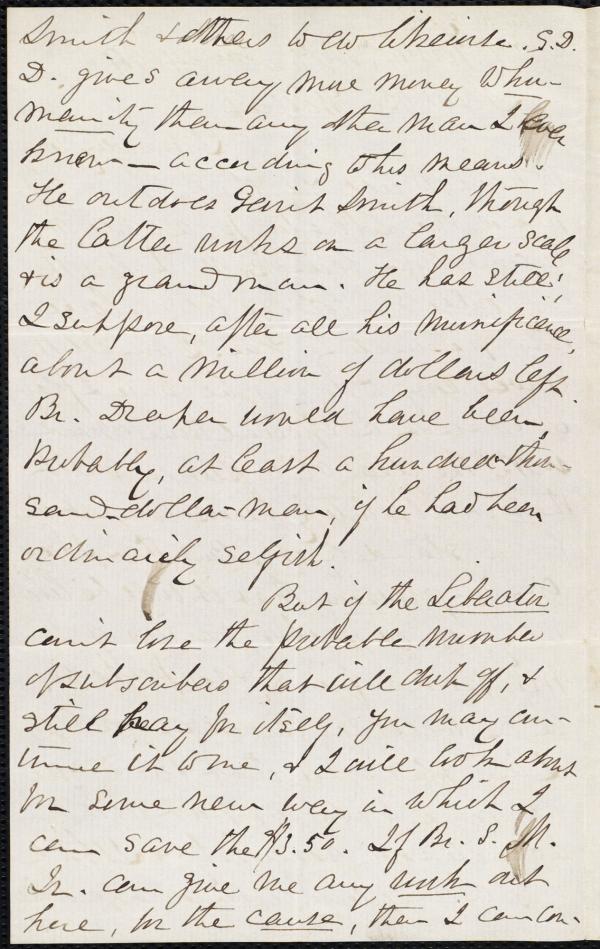 Smith & others to do likewise. G.D.
D. gives away more money to hu-
manity than any other man I ever
knew — according to his means.
He outdoes Gerrit Smith, though
the latter works on a larger scale
& is a grand man. He has still,
I suppose, after all his munificence,
about a million of dollars left.
Br. Draper would have been,
probably, at least a hundred-thou-
sand-dollar-man, if he had been
ordinarily selfish.
But if the Liberator
can't lose the probable number
of subscribers that will drop off, &
still pay for itself, you may con-
tinue it to me, & I will look about
for some new way in which I
can save the $3.50. If Br. S. M.
Jr. can give me any work out
here, for the cause, then I can con-